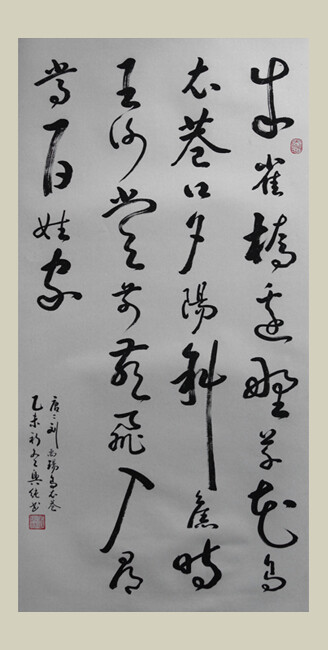 朱雀橋邊野草花烏
衣巷口夕陽斜舊時
王謝堂前燕飛入尋
常百姓家
唐刘禹錫烏衣巷
乙未初冬興